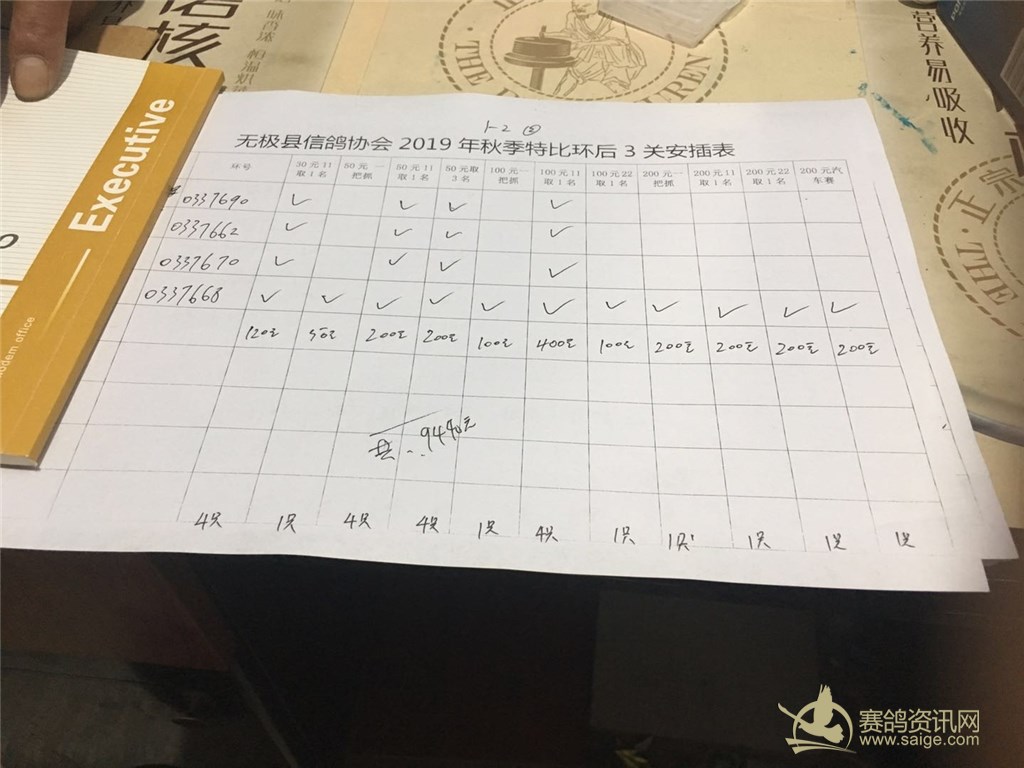 诺核
营养易吸收
正宗
THE
Executive
modern office
1-2 ⑤
无极县信鸽协会 2019 年秋季特比环后 3 关安插表
环号 30元11取1名 50元一把抓 50元11取1名 50元取3名 100元一把抓 100元11取1名 100元22取1名 200元一把抓 200元11取1名 200元22取1名 200元汽车赛
0337690 ✓ ✓ ✓ ✓
0337662 ✓ ✓ ✓ ✓
0337670 ✓ ✓ ✓ ✓
0337668 ✓ ✓ ✓ ✓ ✓ ✓ ✓ ✓ ✓ ✓ ✓
120元 50元 200元 200元 100元 400元 100元 200元 200元 200元 200元
共
4只 1只 4只 4只 1只 4只 1只 1只 1只 1只 1只
赛鸽资讯网
www.saige.com